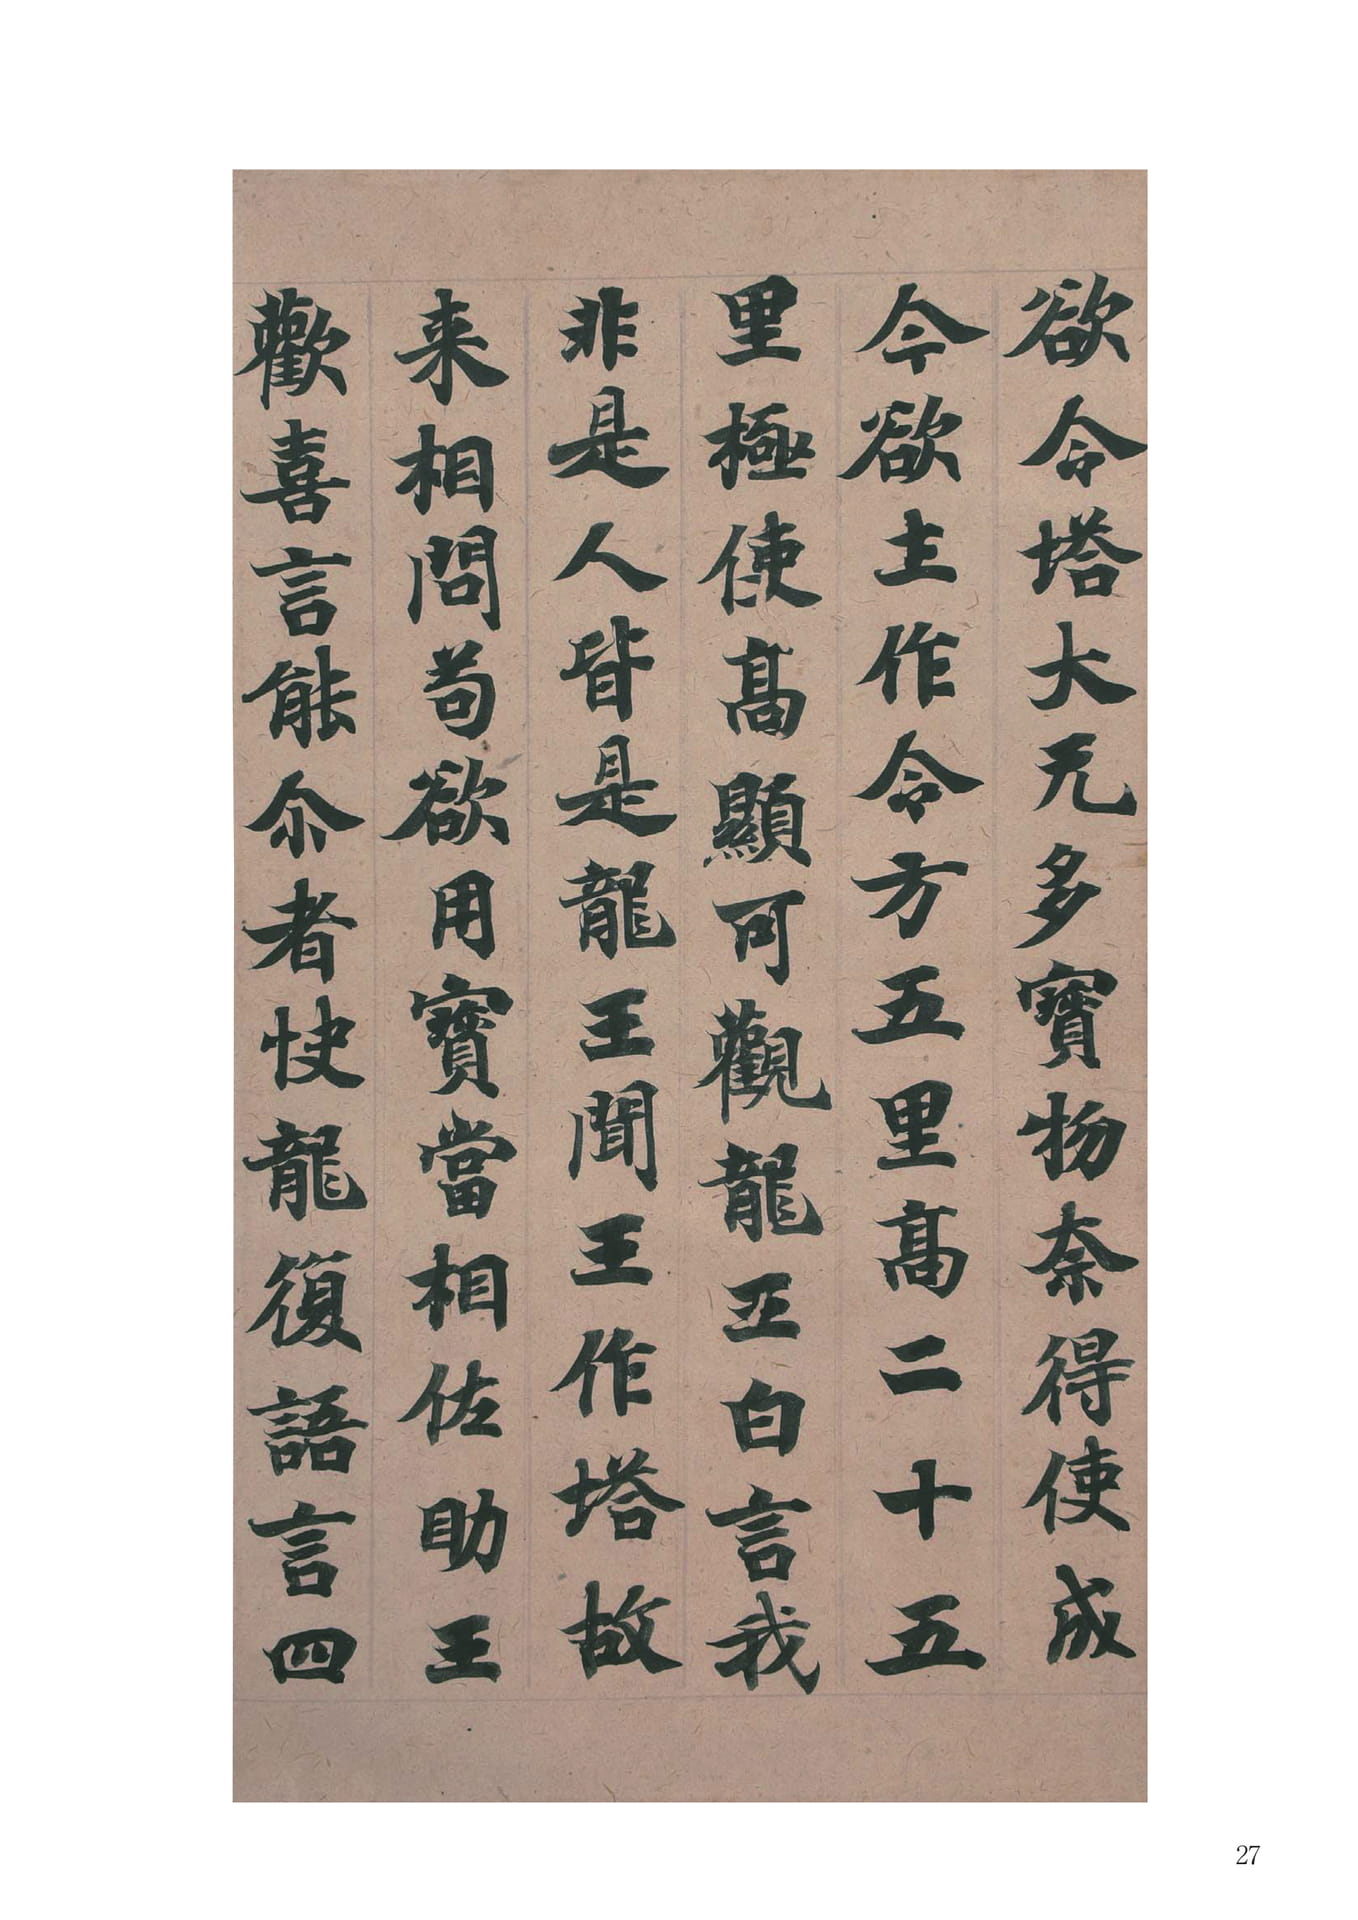 欲令塔大无多寶物奈得使成
今欲主作令方五里高二十五
里極使高顯可觀龍王白言我
非是人皆是龍王聞王作塔故
来相問苟欲用寶當相佐助王
歡喜言能尒者快龍復語言四
27